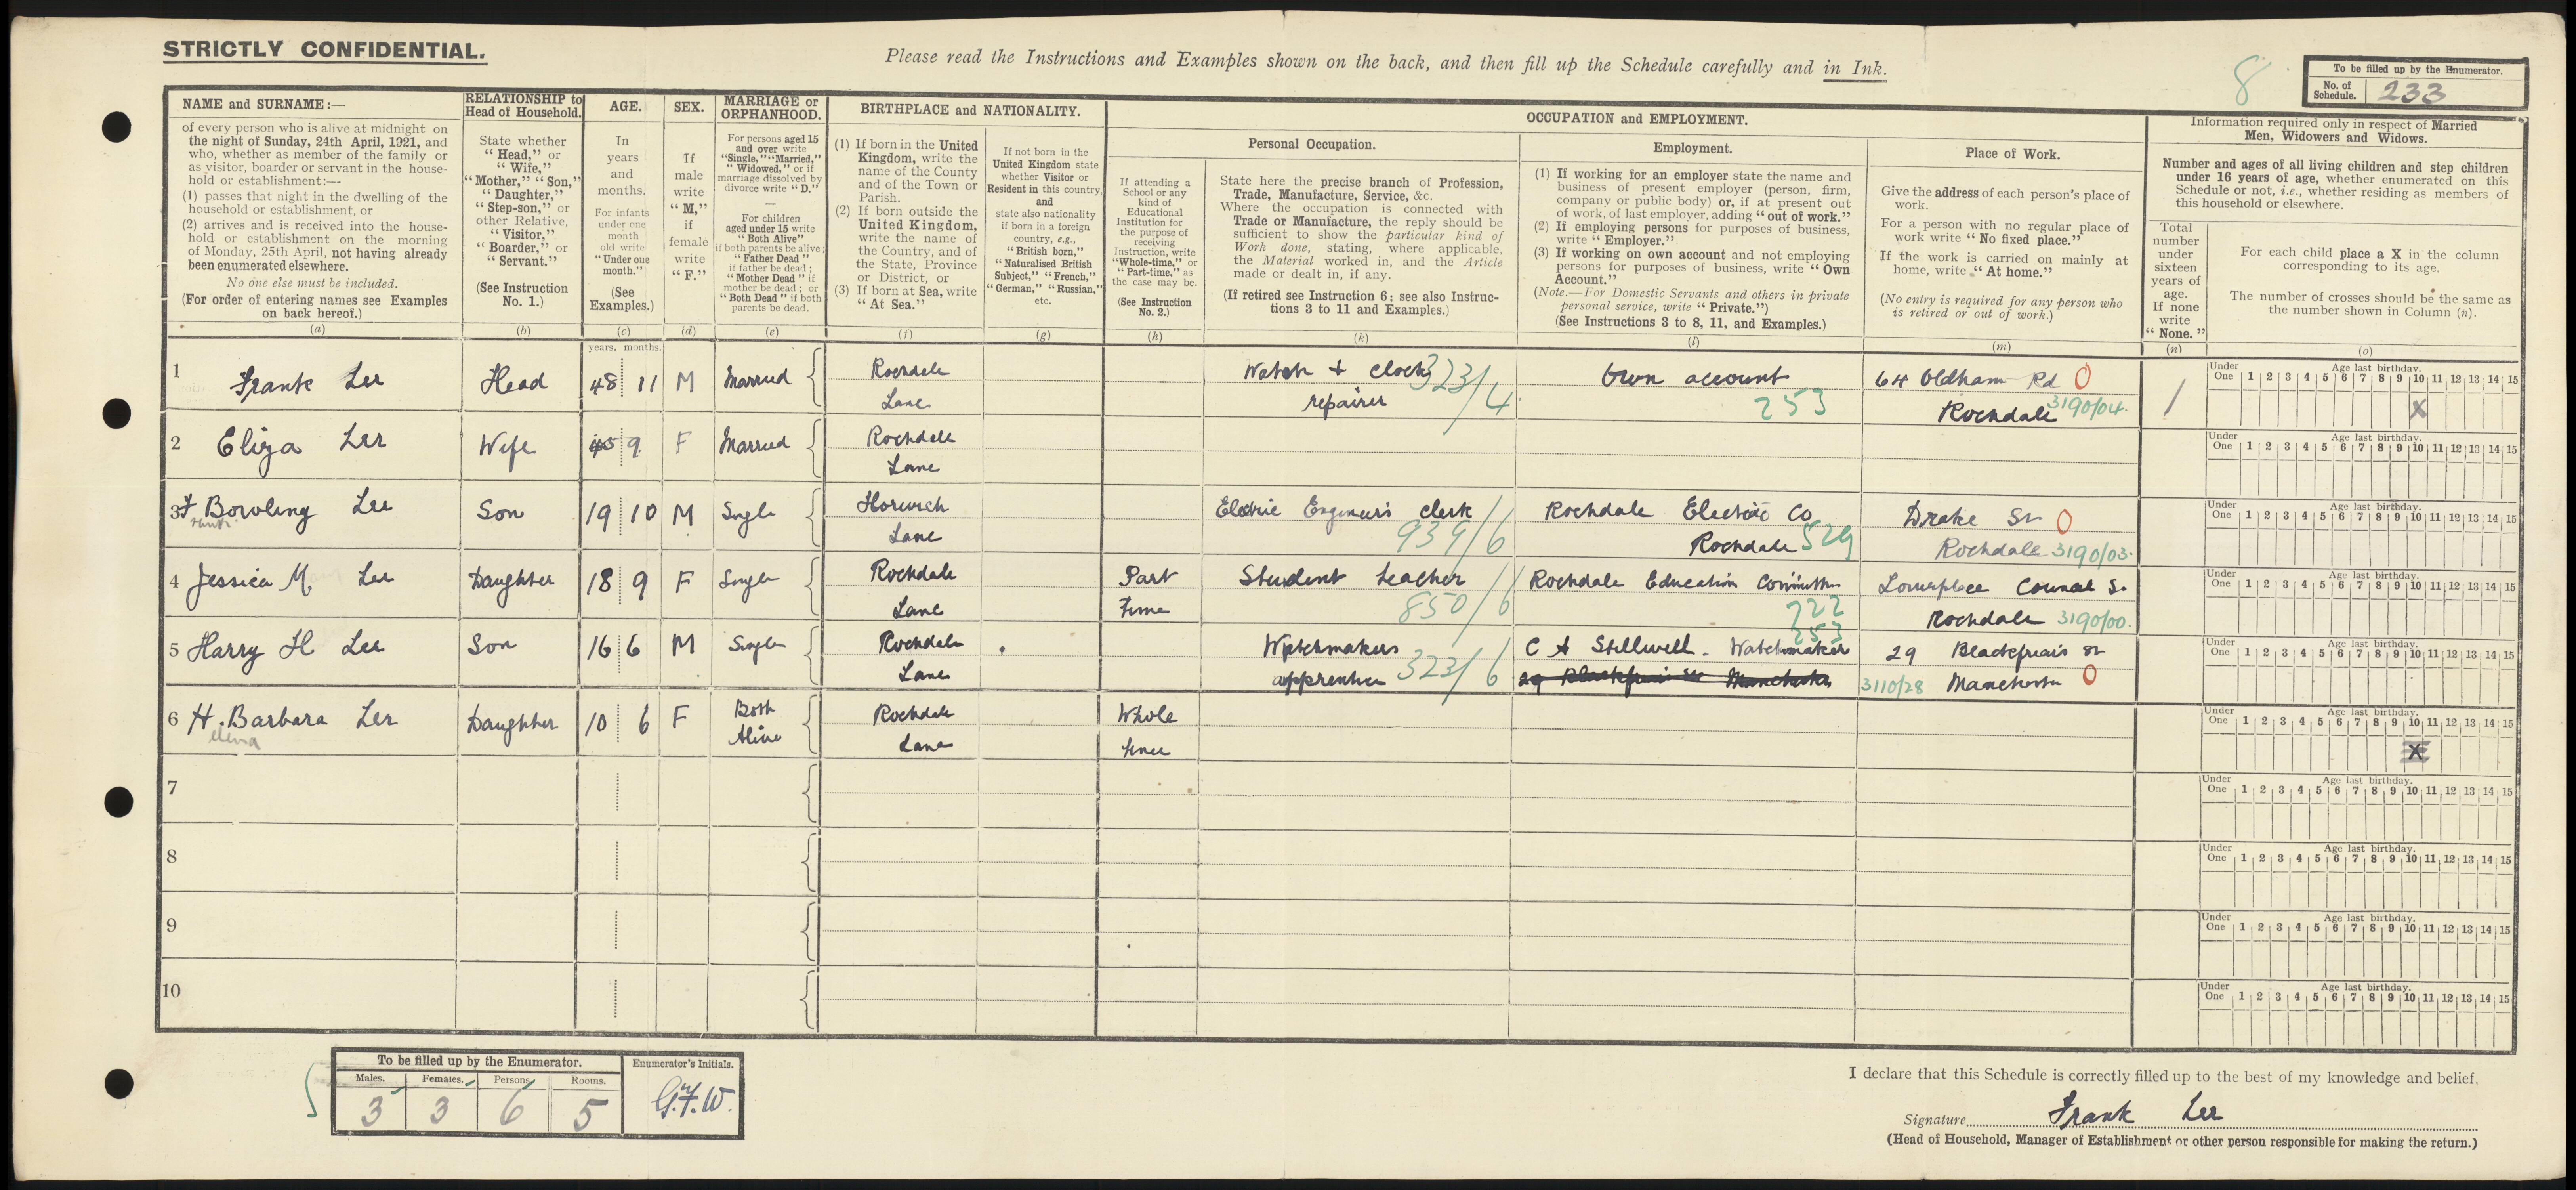 STRICTLY CONFIDENTIAL.
Please read the Instructions and Examples shown on the back, and then fill up the Schedule carefully and in Ink.
8
To be filled up by the Enumerator.
No. of Schedule. 233
NAME and SURNAME:—
of every person who is alive at midnight on
the night of Sunday, 24th April, 1921, and
who, whether as member of the family or
as visitor, boarder or servant in the house-
hold or establishment:—
(1) passes that night in the dwelling of the
household or establishment, or
(2) arrives and is received into the house-
hold or establishment on the morning
of Monday, 25th April, not having already
been enumerated elsewhere.
No one else must be included.
(For order of entering names see Examples
on back hereof.)
(a)
RELATIONSHIP to
Head of Household.
State whether
"Head," or
"Wife,"
"Mother," "Son,"
"Daughter,"
"Step-son," or
other Relative,
"Visitor,"
"Boarder," or
"Servant."
(See Instruction
No. 1.)
(b)
AGE.
In
years
and
months.
For infants
under one
month
old write
"Under one
month."
(See
Examples.)
(c)
SEX.
If
male
write
"M,"
if
female
write
"F."
(d)
MARRIAGE or
ORPHANHOOD.
For persons aged 15
and over write
"Single," "Married,"
"Widowed," or if
marriage dissolved by
divorce write "D."
—
For children
aged under 15 write
"Both Alive"
if both parents be alive;
"Father Dead"
if father be dead;
"Mother Dead" if
mother be dead; or
"Both Dead" if both
parents be dead.
(e)
BIRTHPLACE and NATIONALITY.
(1) If born in the United
Kingdom, write the
name of the County
and of the Town or
Parish.
(2) If born outside the
United Kingdom,
write the name of
the Country, and of
the State, Province
or District, or
(3) If born at Sea, write
"At Sea."
(f)
If not born in the
United Kingdom state
whether Visitor or
Resident in this country,
and
state also nationality
if born in a foreign
country, e.g.,
"British born,"
"Naturalised British
Subject," "French,"
"German," "Russian,"
etc.
(g)
OCCUPATION and EMPLOYMENT.
Personal Occupation.
If attending a
School or any
kind of
Educational
Institution for
the purpose of
receiving
Instruction, write
"Whole-time," or
"Part-time," as
the case may be.
(See Instruction
No. 2.)
(h)
State here the precise branch of Profession,
Trade, Manufacture, Service, &c.
Where the occupation is connected with
Trade or Manufacture, the reply should be
sufficient to show the particular kind of
Work done, stating, where applicable,
the Material worked in, and the Article
made or dealt in, if any.
(If retired see Instruction 6: see also Instruc-
tions 3 to 11 and Examples.)
(k)
Employment.
(1) If working for an employer state the name and
business of present employer (person, firm,
company or public body) or, if at present out
of work, of last employer, adding "out of work."
(2) If employing persons for purposes of business,
write "Employer."
(3) If working on own account and not employing
persons for purposes of business, write "Own
Account."
(Note.—For Domestic Servants and others in private
personal service, write "Private.")
(See Instructions 3 to 8, 11, and Examples.)
(l)
Place of Work.
Give the address of each person's place of
work.
For a person with no regular place of
work write "No fixed place."
If the work is carried on mainly at
home, write "At home."
(No entry is required for any person who
is retired or out of work.)
(m)
Information required only in respect of Married
Men, Widowers and Widows.
Number and ages of all living children and step children
under 16 years of age, whether enumerated on this
Schedule or not, i.e., whether residing as members of
this household or elsewhere.
Total
number
under
sixteen
years of
age.
If none
write
"None."
(n)
For each child place a X in the column
corresponding to its age.
The number of crosses should be the same as
the number shown in Column (n).
(o)
years. months.
1 Frank Lee Head 48 11 M Married Rochdale Watch & clock 323/4 Own account 64 Oldham Rd O
Lanc repairer 253 Rochdale 3190/04. 1
Under One 1 2 3 4 5 6 7 8 9 10 11 12 13 14 15
Age last birthday.
X
2 Eliza Lee Wife 45 9 F Married Rochdale
Lanc
Under One 1 2 3 4 5 6 7 8 9 10 11 12 13 14 15
Age last birthday.
3 F Bowling Lee Son 19 10 M Single Horwich Electric Engineers clerk Rochdale Electric Co Drake St O
Lanc 939/6 Rochdale 529 Rochdale 3190/03.
Under One 1 2 3 4 5 6 7 8 9 10 11 12 13 14 15
Age last birthday.
4 Jessica M Lee Daughter 18 9 F Single Rochdale Part Student teacher Rochdale Education Committee Lowerplace Council S.
Lanc Time 850/6 722 Rochdale 3190/00.
Under One 1 2 3 4 5 6 7 8 9 10 11 12 13 14 15
Age last birthday.
5 Harry H Lee Son 16 6 M Single Rochdale Watchmakers C A Stillwell. Watchmaker 253 29 Blackfriars St
Lanc apprentice 323/6 29 Blackfriars St Manchester 3110/28 Manchester O
Under One 1 2 3 4 5 6 7 8 9 10 11 12 13 14 15
Age last birthday.
6 H. Barbara Lee Daughter 10 6 F Both Rochdale Whole
Alive Lanc time
Under One 1 2 3 4 5 6 7 8 9 10 11 12 13 14 15
Age last birthday.
X
7
Under One 1 2 3 4 5 6 7 8 9 10 11 12 13 14 15
Age last birthday.
8
Under One 1 2 3 4 5 6 7 8 9 10 11 12 13 14 15
Age last birthday.
9
Under One 1 2 3 4 5 6 7 8 9 10 11 12 13 14 15
Age last birthday.
10
Under One 1 2 3 4 5 6 7 8 9 10 11 12 13 14 15
Age last birthday.
To be filled up by the Enumerator.
Males. Females. Persons. Rooms.
3 3 6 5
Enumerator's Initials.
G.F.W.
I declare that this Schedule is correctly filled up to the best of my knowledge and belief.
Signature Frank Lee
(Head of Household, Manager of Establishment or other person responsible for making the return.)